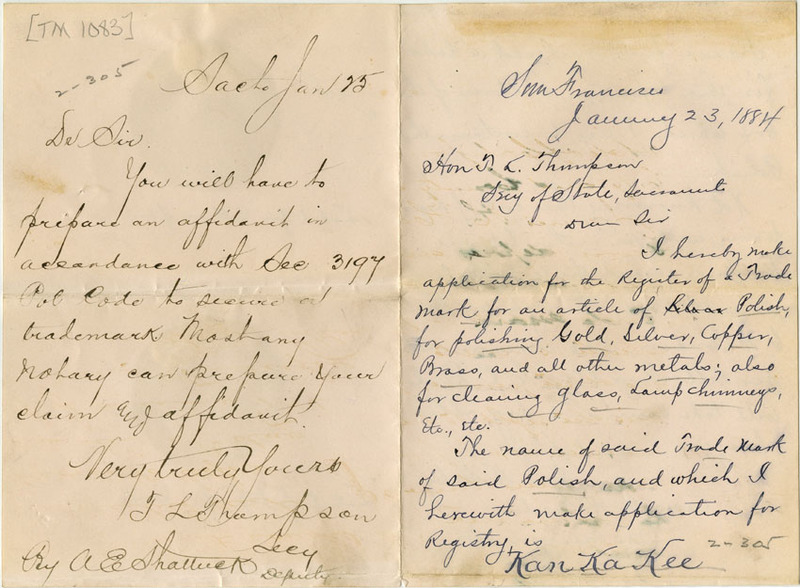 [TM 1083]
2-305
Sacto Jan 25
De Sir.
You will have to
prepare an affidavit in
accordance with Sec 3197
Pol Code to secure a
trademark Most any
Notary can prepare your
claim & affidavit.
Very truly Yours
T L Thompson
Secy
By A E Shattuck Deputy
San Francisco
January 23, 1884
Hon T. L. Thompson
Secy of State, Sacramento
Dear Sir
I hereby make
application for the Register of a Trade
Mark for an article of Silver Polish,
for polishing Gold, Silver, Copper,
Brass, and all other metals; also
for cleaning glass, Lamp chimneys,
Etc., etc.
The name of said Trade Mark
of said Polish, and which I
herewith make application for
Registry, is
Kan Ka Kee
2-305